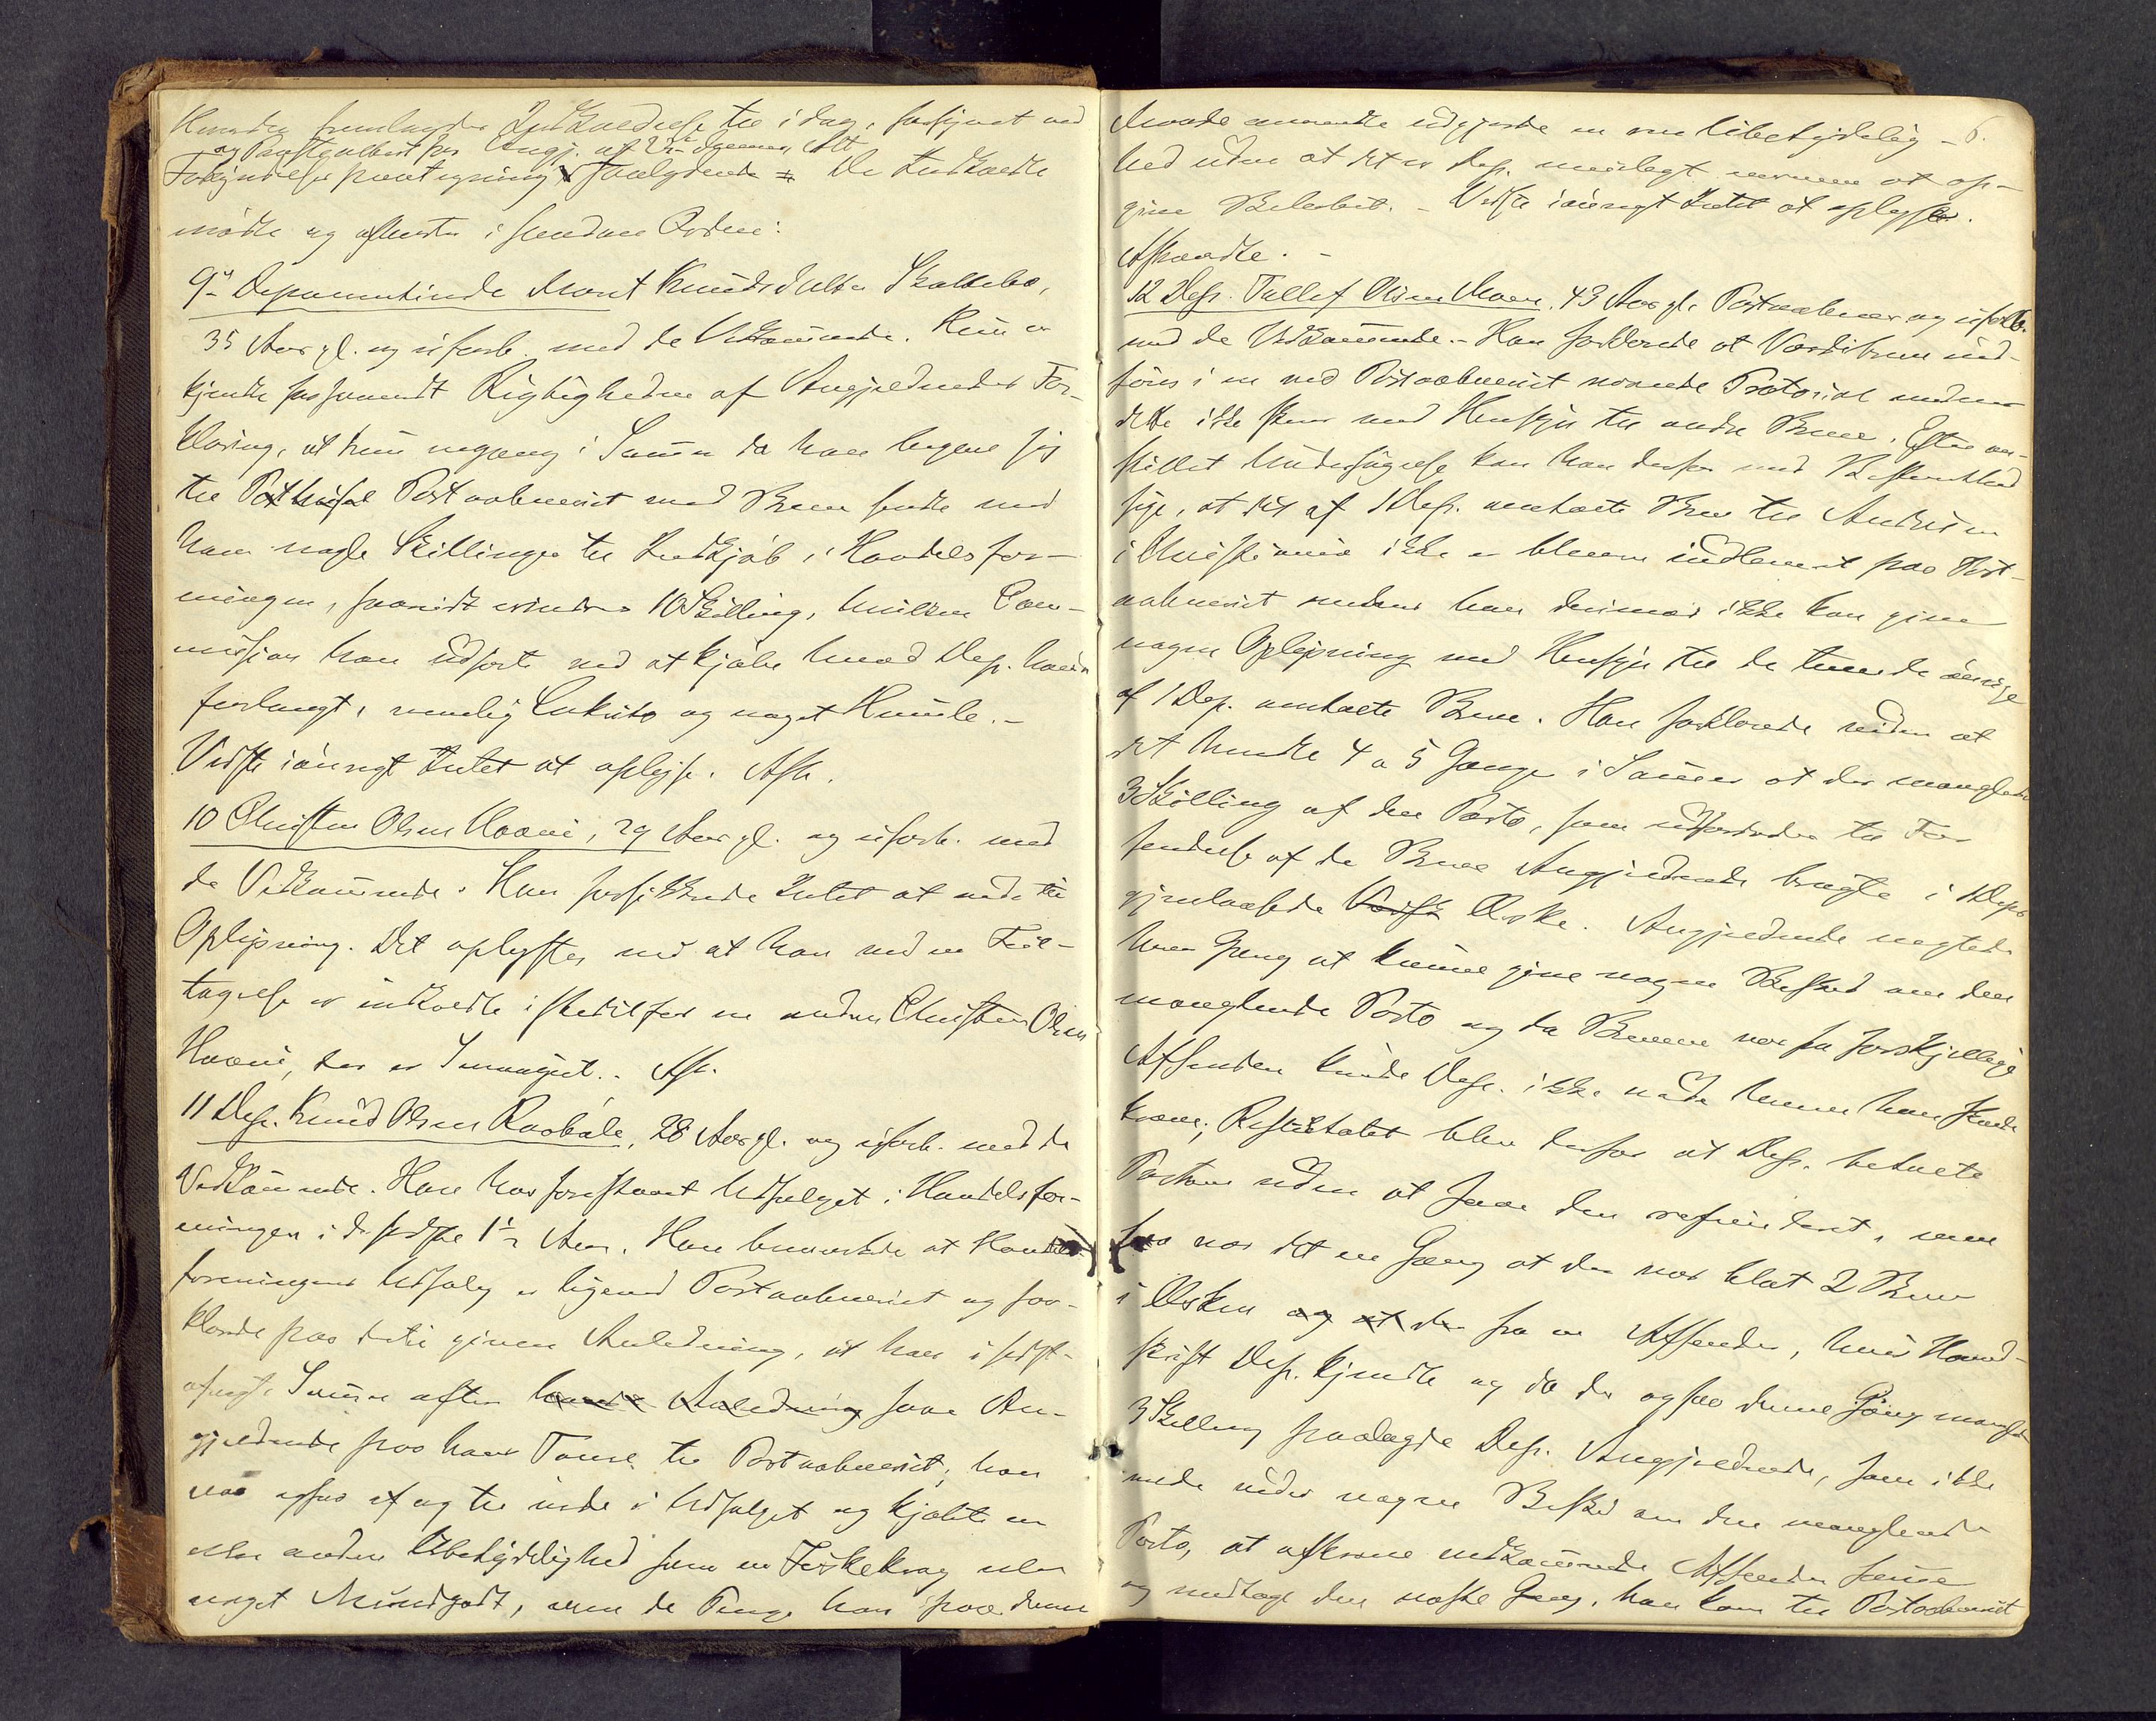 fremlagdes Indkaldelse til i dag, forsynet med
og Prästeattest for Angj. af
Forkyndelsespaategning saalydende De Indkaldte
mödte og afhörtes i saadan Orden:
9de Deponentinde Marit Knudsdatter Skattebo,
35 Aar gl. og uforb. med de Vedkommende. Hun er
kjendte forsaavidt Rigtigheden af Angjeldendes For-
klaring, at hun engang i Sommer da han begav sig
til Posthuset Postaabneriet med Breve sendte med
ham nogle Skillinger til Indkjöb i Handelsfor-
eningen, saavidt erindres 10 Skilling, hvilken Com-
mission han udförte ved at kjöbe hvad Dep. havde
forlangt, nemlig Cukrito og noget Humle.-
Vidste iövrigt Intet at oplyse. Afh.
10 Christen Olsen Haave, 29 Aar gl. og uforb. med
de Vedkommende. Han forsikkrede Intet at vide til
Oplysning. Det oplystes nu at han ved en Feil-
tagelse er indkaldt istedetfor en anden Christen Olsen
Haave, der er Afh.
11 Dep. Knud Olsen Raabøle, 28 Aar gl. og uforb. med de
Vedkommende. Han har forestaaet Udsalget i Handelsfor-
eningen i de sidste 1½ Aar. Han bemærkede at Handels
foreningens Udsalg er ligeved Postaabneriet og for-
klarede paa dertil given Anledning, at han i sidst-
afvigte Sommer oftere havde Anledning saae An-
gjeldende paa hans Toure til Postaabneriet; han
var ogsaa af og til inde i Udsalget og kjöbte en
eller anden Ubetydelighed som en Fiskekrog eller
noget Mundgodt, men de Penge han paa denne
Maade anvendte udgjorde en ren Ubetydelig- 6.
hed uden at det er Dep. muligt nærmere at op-
give Belöbet. - Vidste iövrigt Intet at oplyse.
Afhandle. -
12 Dep. Tollef Olsen Moen, 43 Aar gl. Postaabner og uforb.
med de Vedkommende.- Han forklarede at Værdibreve ind-
föres i en ved Postaabneriet værende Protocol medens
dette ikke sker med Hensyn til andre Breve. Efter an-
stillet Undersögelse kan han derfor med Bestemthed
sige, at det af 1 Dep. omhandlede Brev til Andersen
i Christiania ikke er bleven indleveret paa Post-
aabneriet medens han derimod ikke kan give
nogen Oplysning med Hensyn til de tvende övrige
af 1 Dep. omtalte Breve. Han forklarede videre at
det hendte 4 a 5 Gange i Sommer at der manglede
3 Skilling af den Porto, som udfordredes til For
sendelse af de Breve Angjeldende bragte i 1 Deps
gjenlaasede Væske Æske. Angjeldende negtede
hver Gang at kunne give nogen Besked om den
manglende Porto og da Brevene var fra forskjellige
Afsendere kunde Dep. ikke vide hvem han skulde
kræve; Resultatet blev derfor at Dep. betalte
Portoen uden at faae den refunderet, men
saa var det en Gang at der var blot 2 Breve
i Æsken og at der fra en Afsender, hvis Haand-
skrift Dep. kjendte og da der ogsaa denne Gang manglede
3 Skilling paalagde Dep. Angjeldende, som ikke
vide nogen Besked om den manglende
Porto, at afkræve vedkommende Afsender samme
og medtage den næste Gang, han kom til Postaabneriet